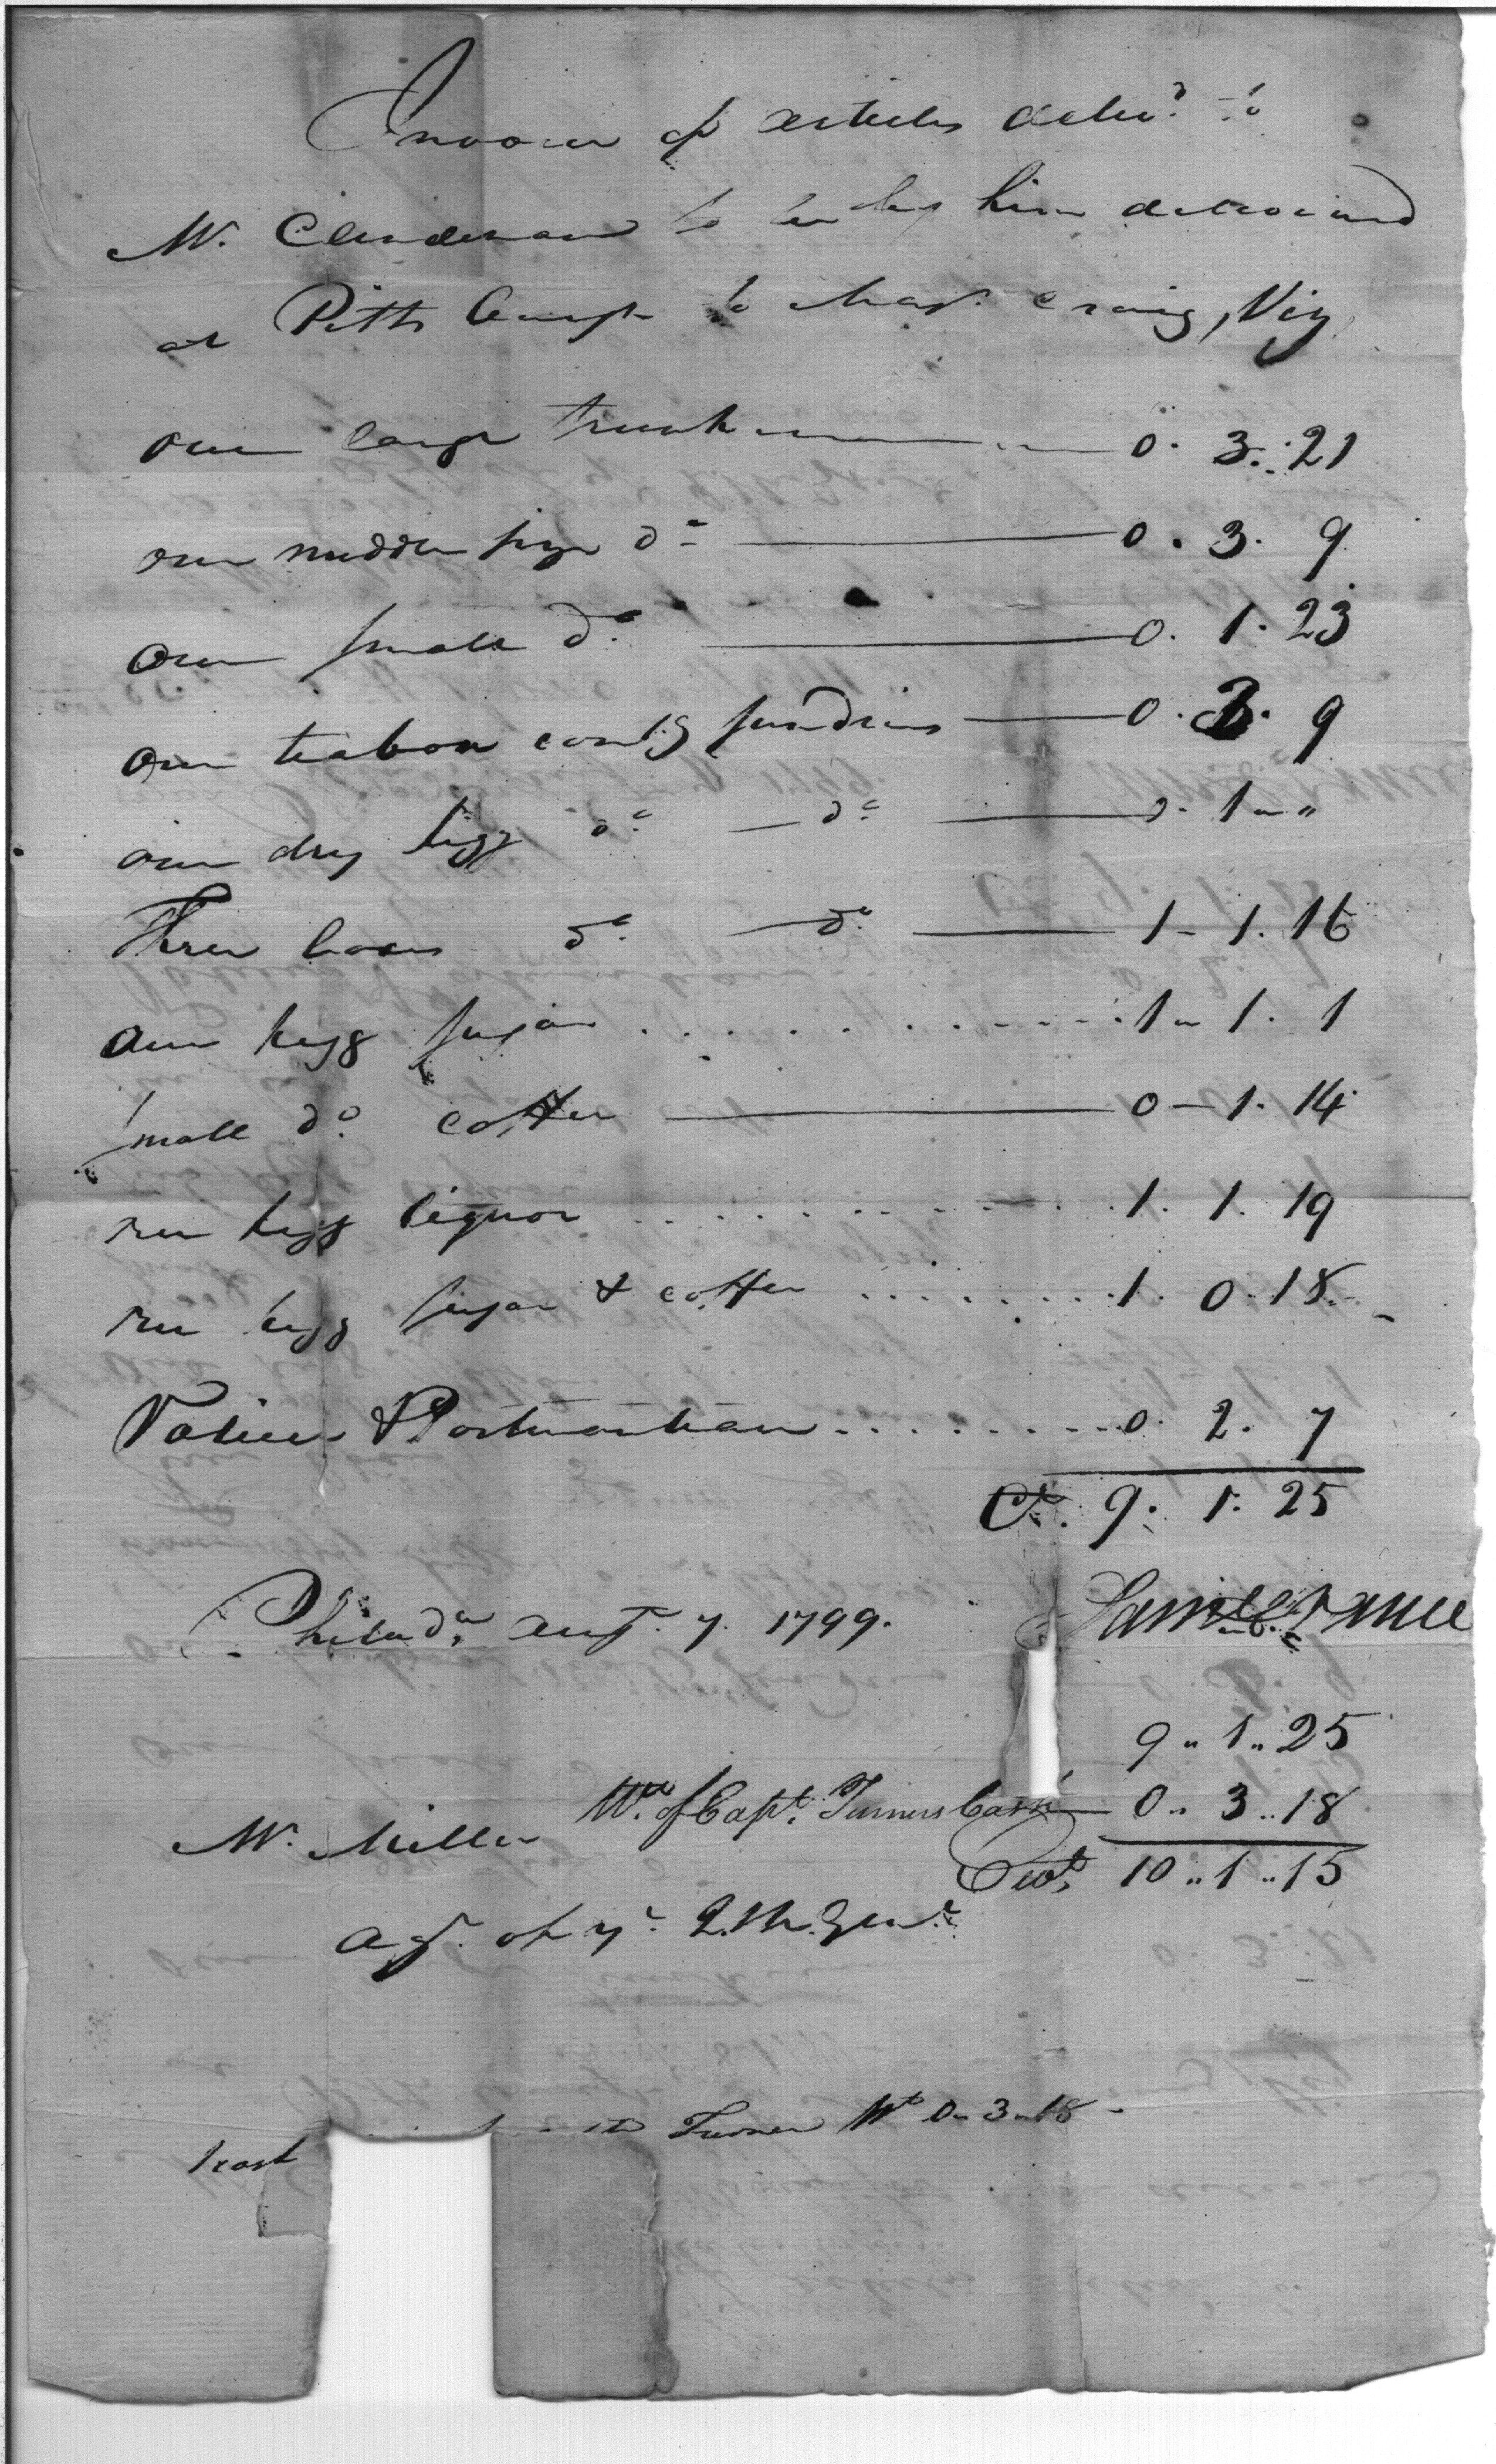 Invoice of articles deliv.d to
Mr. Clendenan to be by him delivered
at Pittsburgh to Maj.r Craig, Viz
one large trunk 0. 3. 21
one middle size d.o 0. 3. 9
One small d.o 0. 1. 23
One teabox cont.g sundries 0. 3. 9
one dry kegg d.o d.o 0. 1 " "
Three boxes d.o d.o 1 - 1. 16
One kegg sugar 1 " 1. 1
small d.o coffee 0 - 1. 14
one kegg liquor 1. 1. 19
one kegg sugar & coffee 1. 0. 18
Valiece & Portmanteau 0. 2. 7
Ct. 9. 1. 25
Philad.a Aug.t 7. 1799.
9 " 1 " 25
Wt. of Capt. Turners Cask 0 " 3 " 18
Mr. Miller
Cwt. 10 " 1 " 15
of y.e Q.M. Gen.l
Turner Wt 0 " 3 " 18